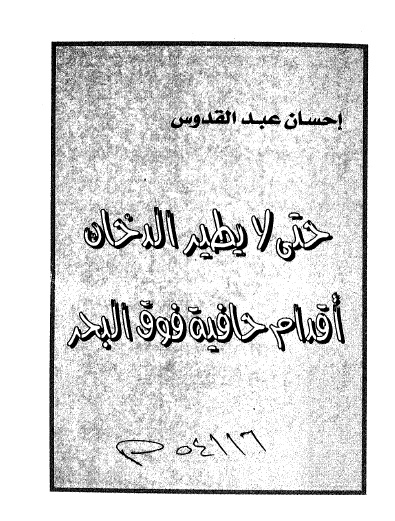 إحسان عبد القدوس
حتى لا يطير الدخان
أقدام حافية فوق البحر
٥٤١١٦